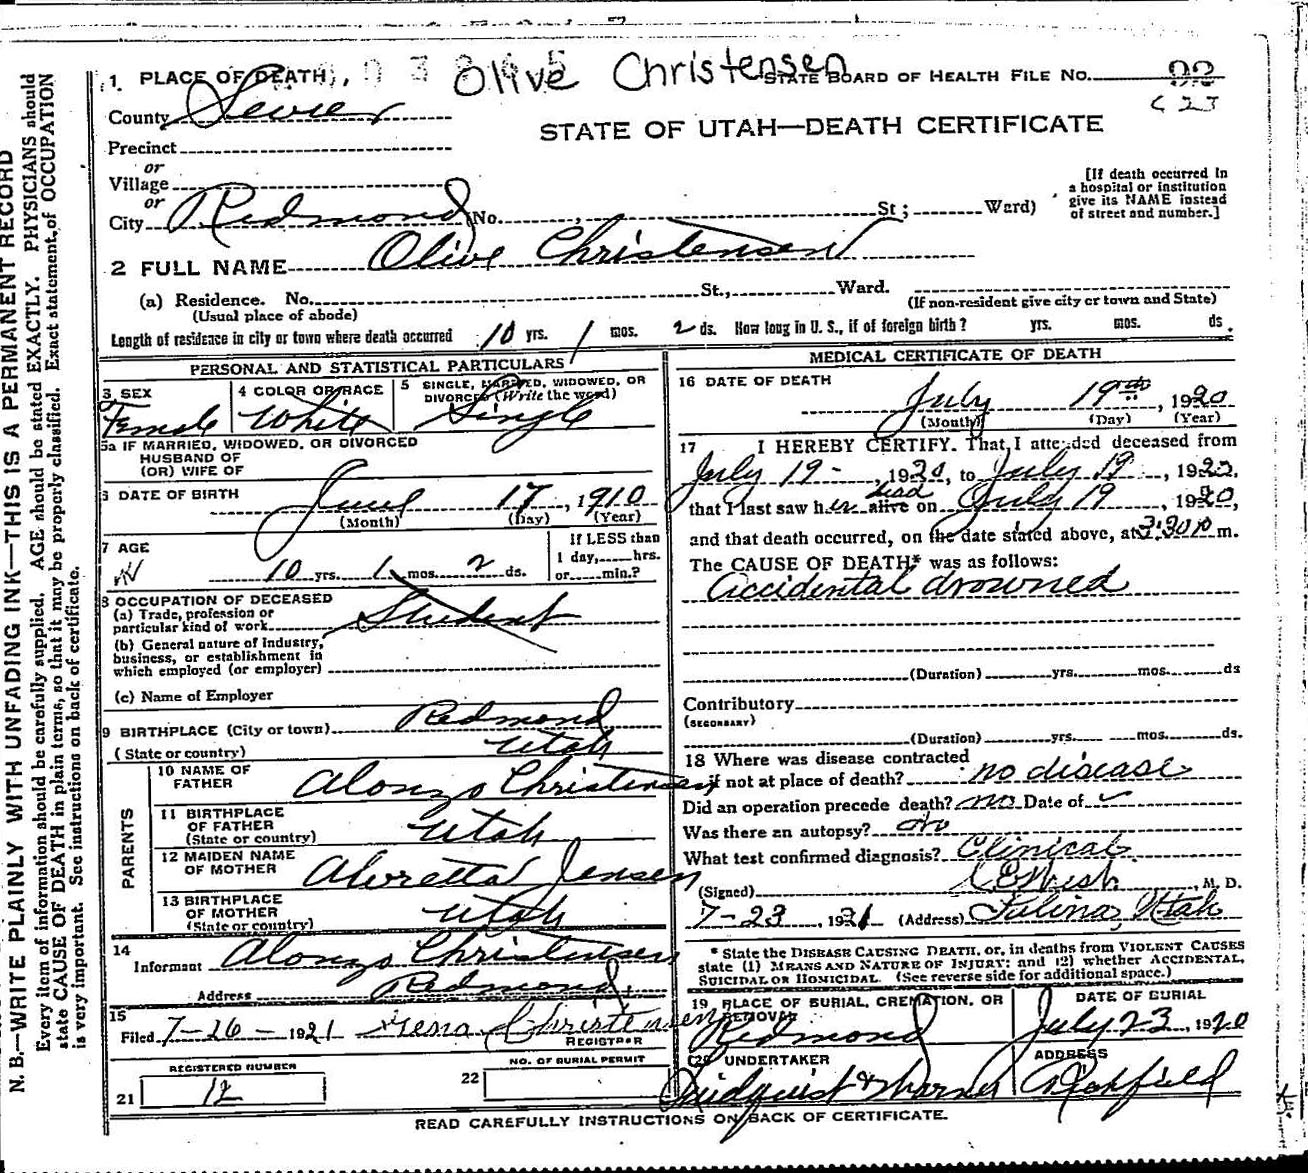 Olive Christensen
1. PLACE OF DEATH
STATE BOARD OF HEALTH FILE No. 22
C 23
County Sevier
STATE OF UTAH—DEATH CERTIFICATE
Precinct
or
Village
or
City Redmond (No. , St ; Ward)
[If death occurred in
a hospital or institution
give its NAME instead
of street and number.]
2 FULL NAME Olive Christensen
(a) Residence. No. St., Ward.
(Usual place of abode)
(If non-resident give city or town and State)
Length of residence in city or town where death occurred 10 yrs. 1 mos. 2 ds. How long in U. S., if of foreign birth? yrs. mos. ds.
PERSONAL AND STATISTICAL PARTICULARS
3 SEX
Female
4 COLOR OR RACE
White
5 SINGLE, MARRIED, WIDOWED, OR
DIVORCED (Write the word)
Single
5a IF MARRIED, WIDOWED, OR DIVORCED
HUSBAND OF
(OR) WIFE OF
6 DATE OF BIRTH
June 17, 1910
(Month) (Day) (Year)
7 AGE
10 yrs. 1 mos. 2 ds.
If LESS than
1 day, hrs.
or min.?
8 OCCUPATION OF DECEASED
(a) Trade, profession or
particular kind of work Student
(b) General nature of industry,
business, or establishment in
which employed (or employer)
(c) Name of Employer
9 BIRTHPLACE (City or town) Redmond
(State or country) Utah
PARENTS
10 NAME OF
FATHER Alonzo Christensen
11 BIRTHPLACE
OF FATHER
(State or country) Utah
12 MAIDEN NAME
OF MOTHER Alvretta Jensen
13 BIRTHPLACE
OF MOTHER
(State or country) Utah
14
Informant Alonzo Christensen
Address Redmond,
15
Filed 7-26-1921 Christensen
REGISTRAR
REGISTERED NUMBER
21 12
NO. OF BURIAL PERMIT
22
MEDICAL CERTIFICATE OF DEATH
16 DATE OF DEATH
July 19th, 1920
(Month) (Day) (Year)
17 I HEREBY CERTIFY. That, I attended deceased from
July 19 -, 1920, to July 19, 1920,
dead
that I last saw her alive on July 19, 1920,
and that death occurred, on the date stated above, at 3:30 p m.
The CAUSE OF DEATH* was as follows:
Accidental drowned
(Duration) yrs. mos. ds
Contributory
(SECONDARY)
(Duration) yrs. mos. ds.
18 Where was disease contracted
if not at place of death? no disease
Did an operation precede death? no Date of
Was there an autopsy? no
What test confirmed diagnosis? Clinical
(Signed) , M. D.
7-23, 1921 (Address) Salina, Utah
* State the DISEASE CAUSING DEATH, or, in deaths from VIOLENT CAUSES
state (1) MEANS AND NATURE OF INJURY; and (2) whether ACCIDENTAL,
SUICIDAL OR HOMICIDAL. (See reverse side for additional space.)
19 PLACE OF BURIAL, CREMATION, OR
REMOVAL
Redmond
DATE OF BURIAL
July 23, 1920
20 UNDERTAKER
Lindquist & Warner
ADDRESS
Richfield
READ CAREFULLY INSTRUCTIONS ON BACK OF CERTIFICATE.
N. B.—WRITE PLAINLY WITH UNFADING INK—THIS IS A PERMANENT RECORD
Every item of information should be carefully supplied. AGE should be stated EXACTLY. PHYSICIANS should
state CAUSE OF DEATH in plain terms, so that it may be properly classified. Exact statement of OCCUPATION
is very important. See instructions on back of certificate.